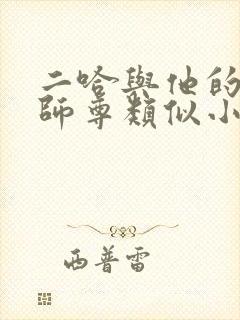 二哈與他的
師尊類似小
西普雷